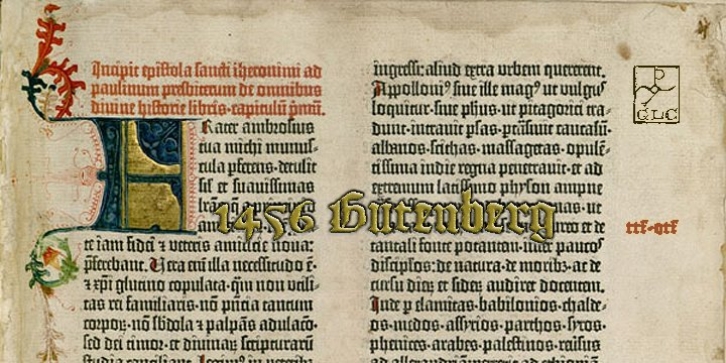 Incipit epistola sancti iheronimi ad
paulinum presbiterum de omnibus
divine historie libris·capitulū pmū.
Frater ambrosius
tua michi munus-
cula pferens·detulit
sil et suavissimas
te iam fidei et veteris amicicie nova:
pferebant. Vera eni illa necessitudo ē·
et xpi glutino copulata·qm non utili-
tas rei familiaris·nō pncia tantum
corporū·nō sbdola et palpans adulacō·
sed dei timor·et divinarū scripturarū
ingressi:aliud extra urbem quererent.
Appolloni⁹ sive ille mag⁹ ut vulgus
loquitur·sive phus·ut pitagorici tra-
dunt·intravit psas·ptrāsivit caucasū·
albanos·scithas·massagetas·opulē-
tissima indie regna penetravit·et ad
extremum latissimo physon ampne
1456 Gutenberg
tantali fonte potantem·inter paucos
discipulos:de natura·de moribz·ac de
cursu dierz et sidez audiret docentem.
Inde p elamitas·babilonios·chalde-
os·medos·assyrios·parthos·syros·
phenices·arabes·palestinos·reversus
P
GLC
ttf-otf